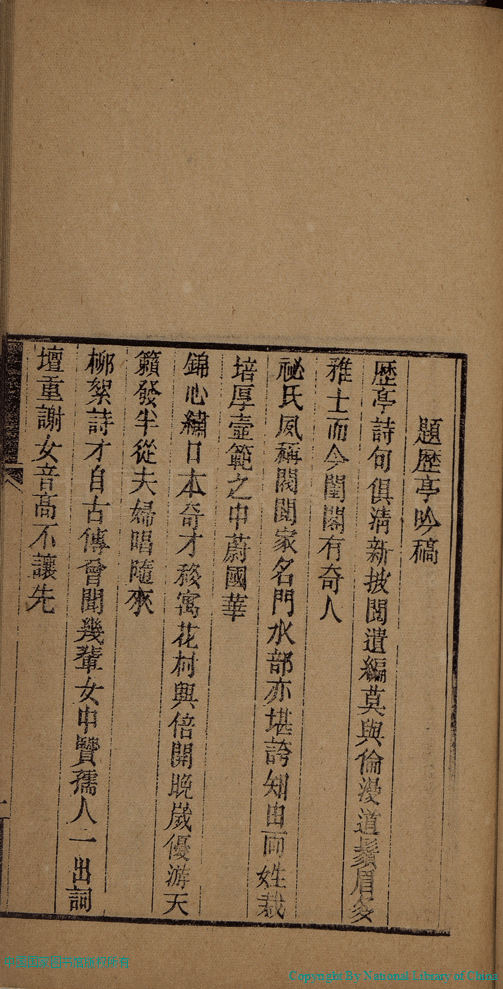 題歷亭吟稿
歷亭詩句俱清新披閱遺編莫與倫漫道鬚眉多
雅士而今閨閣有奇人
祕氏夙稱閥閱家名門水部亦堪誇知由両姓栽
培厚壼範之中蔚國華
錦心繡口本奇才移寓花村興倍開晚歲優游天
籟發半從夫婦唱隨來
柳絮詩才自古傳曾聞幾輩女中賢孺人一出詞
壇重謝女音高不讓先
Copyright By National Library of China